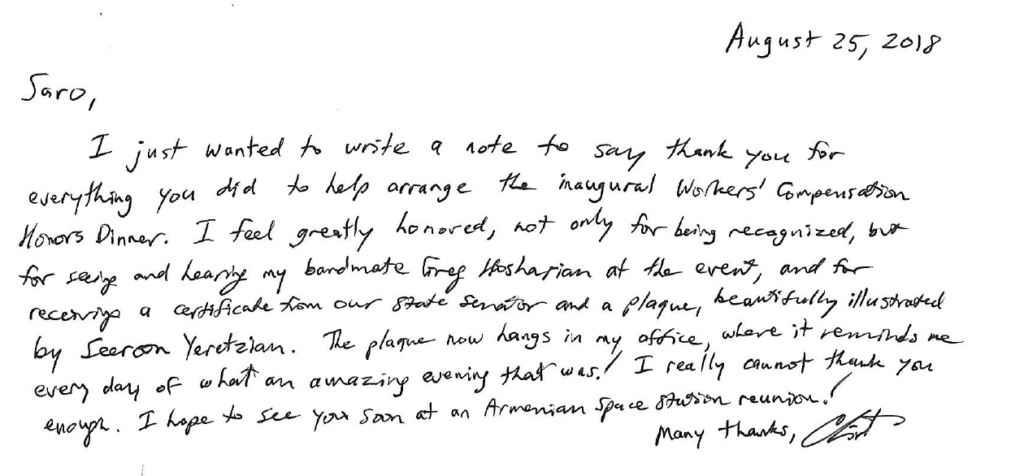 August 25, 2018
Saro,
I just wanted to write a note to say thank you for
everything you did to help arrange the inaugural Workers' Compensation
Honors Dinner. I feel greatly honored, not only for being recognized, but
for seeing and hearing my bandmate Greg Hosharian at the event, and for
receiving a certificate from our State Senator and a plaque, beautifully illustrated
by Seeroon Yeretzian. The plaque now hangs in my office, where it reminds me
every day of what an amazing evening that was! I really cannot thank you
enough. I hope to see you soon at an Armenian Space Station reunion!
Many thanks, Clint